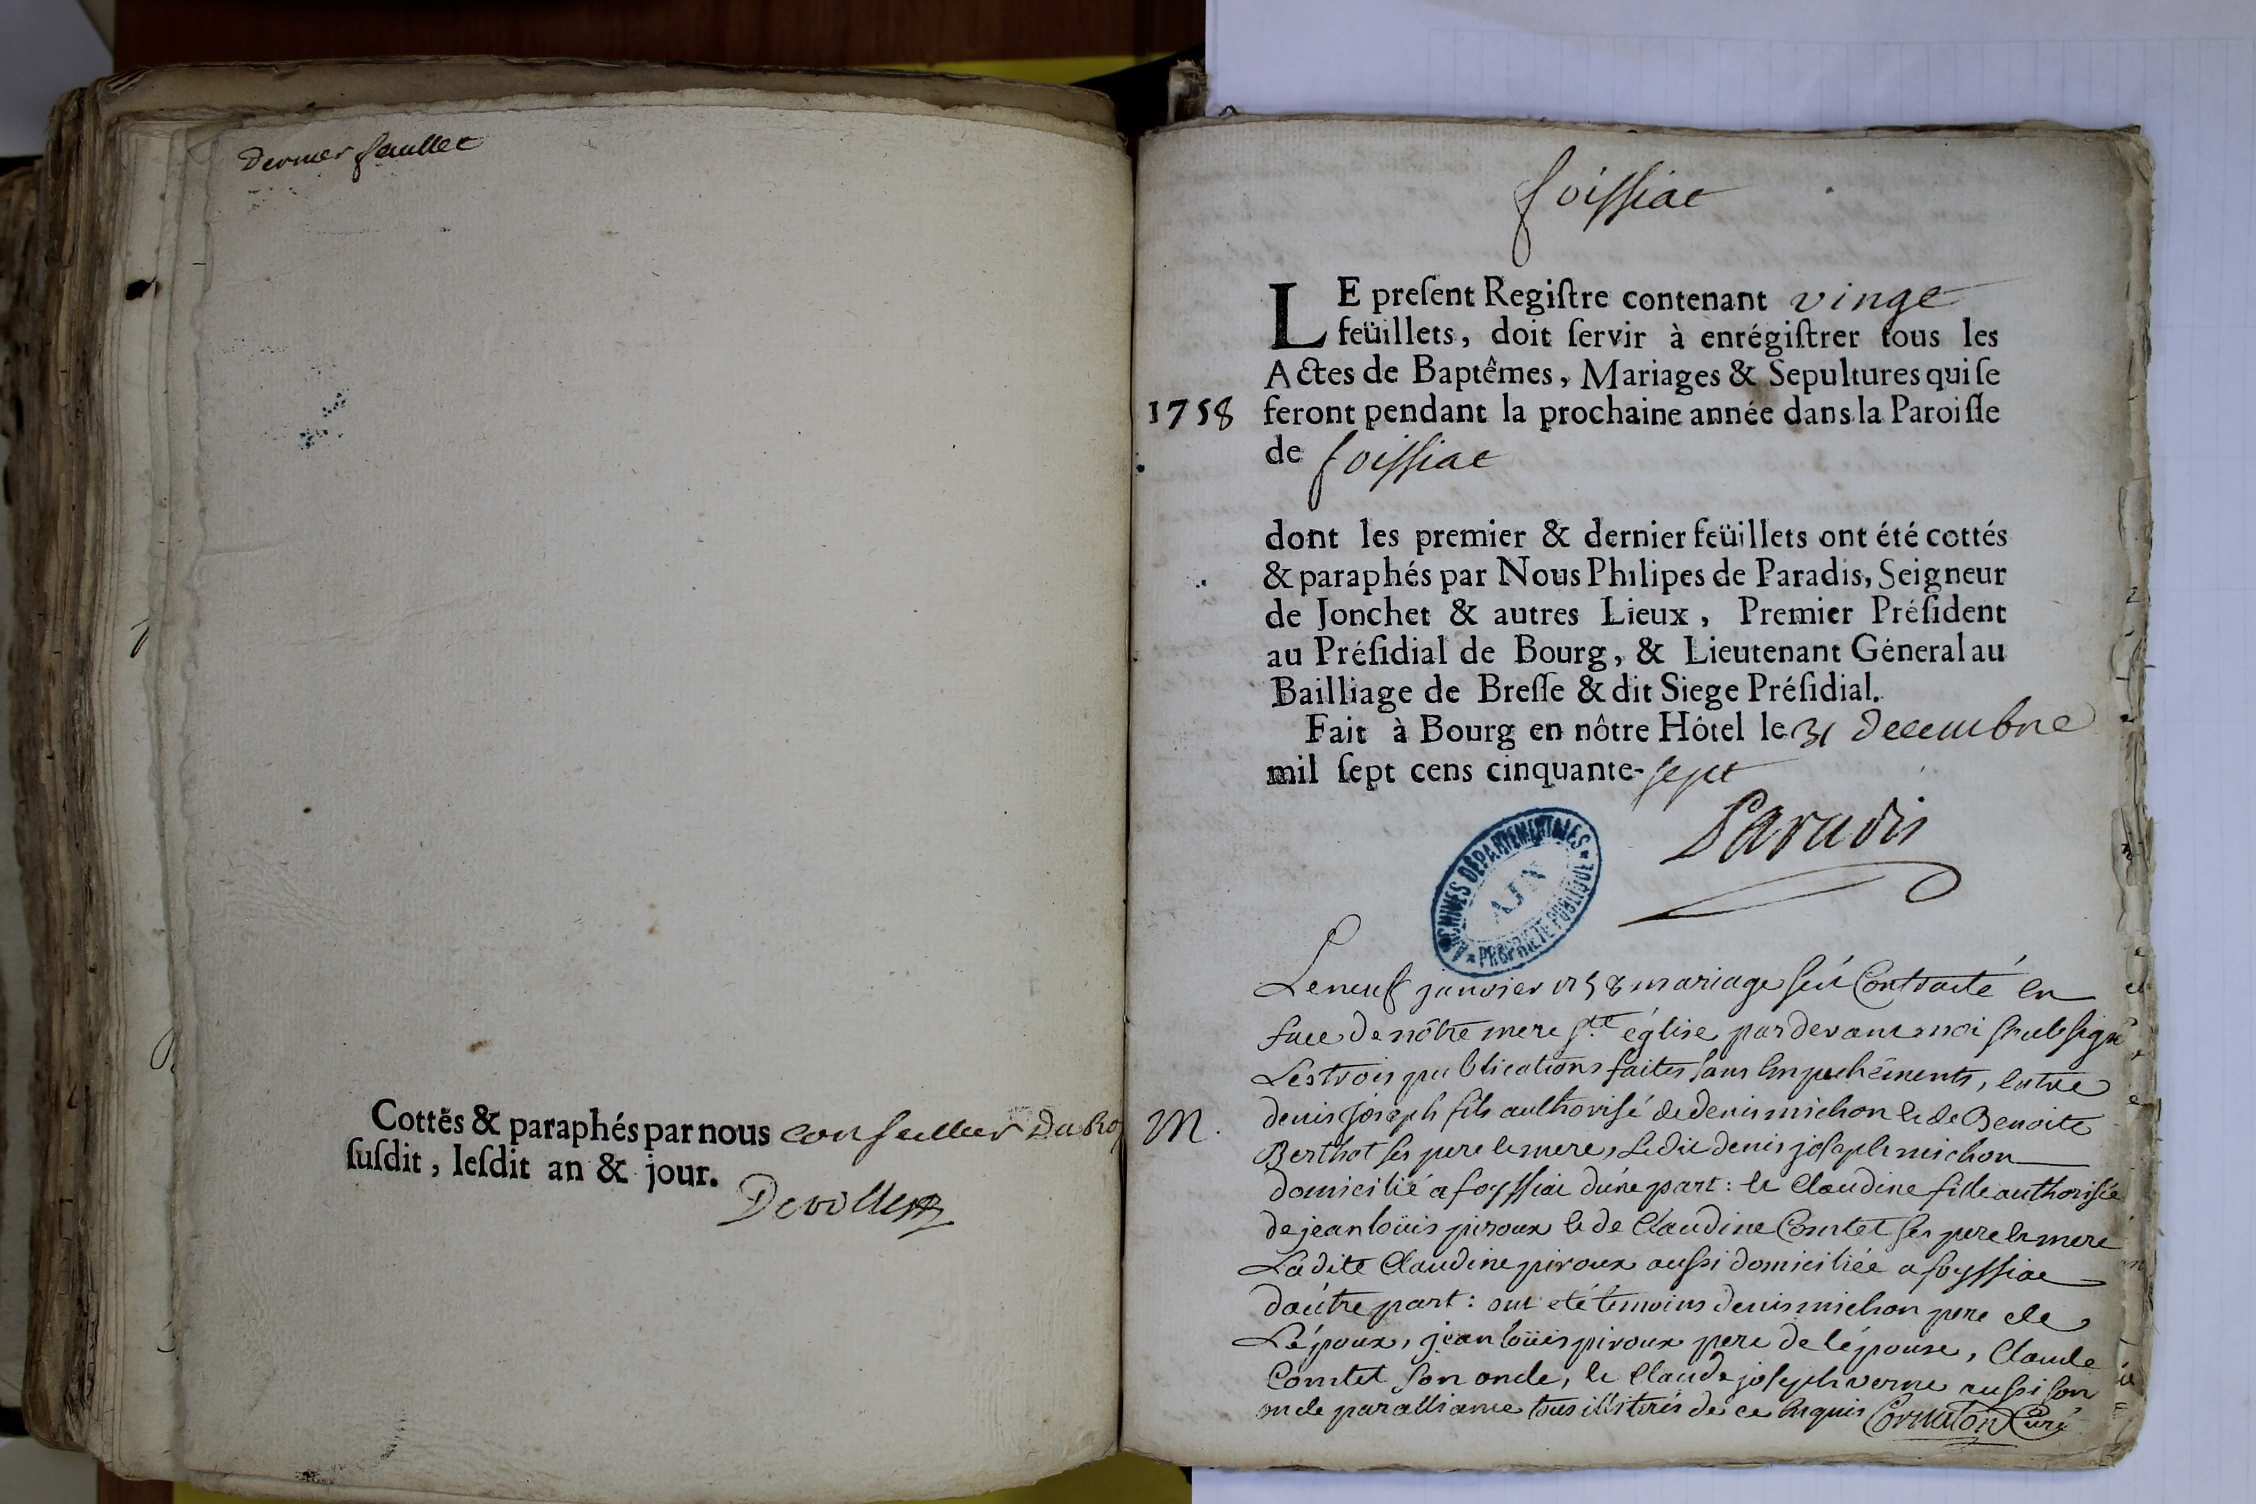 dernier feuillet
Cottés & paraphés par nous conseiller du Roy
susdit, lesdit an & jour.
foissiat
LE present Registre contenant vingt
feüillets, doit servir à enrégistrer tous les
Actes de Baptêmes, Mariages & Sepultures qui se
1758 feront pendant la prochaine année dans la Paroisse
de foissiat
dont les premier & dernier feüillets ont été cottés
& paraphés par Nous Philipes de Paradis, Seigneur
de Jonchet & autres Lieux, Premier Président
au Présidial de Bourg, & Lieutenant Géneral au
Bailliage de Bresse & dit Siege Présidial.
Fait à Bourg en nôtre Hôtel le 31 decembre
mil sept cens cinquante-sept
Paradis
ARCHIVES DÉPARTEMENTALES
AIN
PROPRIÉTÉ PUBLIQUE
Le neuf janvier 1758 mariage fût Contracté en
face de nôtre mere Ste église par devant moi soubsigné
Les trois publications faites sans Empechéments, entre
M. denis joseph fils authorisé de denis michon & de Benoite
Berthot ses pere & mere, Le dit denis joseph michon
domicilié a foyssiat dúne part: & Claudine fille authorisée
de jean loüis piroux & de Claudine Comtet ses pere & mere
Ladite Claudine piroux aussi domiciliée a foyssiat
daútre part: ont été témoins denis michon pere de
Lépoux, jean loüis piroux pere de lépouse, Claude
Comtet son oncle, & Claude joseph verne aussi son
oncle par alliance tous illiterés de ce Enquis Cornaton Curé